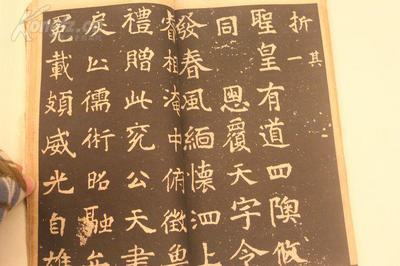 折一
其
聖皇有道四隩攸
同 恩覆天宇令
發春風緬懷泗上
睿想淹中俯徵魯
禮贈此兖公天書
以儒術昭融
載頍威光自雄